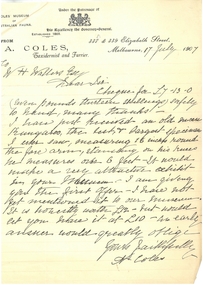 Under the Patronage of
COLES MUSEUM
OF
STUFFED FAUNA.
His Excellency the Governor-General.
FROM
A. COLES,
Taxidermist and Furrier.
Elizabeth Street,
Melbourne, 17 July 1907
W H Wallace Esq
Dear Sir
Cheque for £7-13-0
(seven pounds thirteen shillings) safely
to hand, many thanks
I have just mounted an old man
Kangaroo, the best & largest specimen
I ever saw, measuring 16 inch round
the fore arm, standing on his
he measures over 6 feet. It would
make a very attractive exhibit
in your Museum. I am giving
you the first offer. I have not
yet mentioned it to our museum.
It is honestly worth but would
let you have it at £10 an early
answer would greatly oblige
Yours faithfully
A Coles